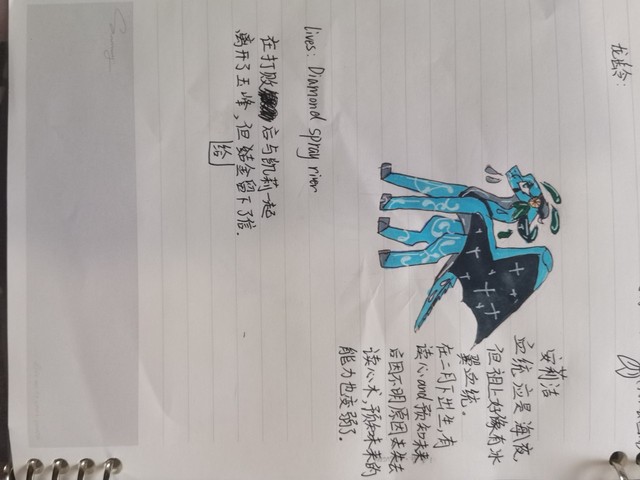 龙龄:
安莉洁
血统应是海夜
但祖上好像有冰
翼血统。
在二月下出生,有
读心and预知未来
后因不明原因失去
读心术,预知未来的
能力也变弱了。
lives: Diamond spray river
在打败后与凯莉一起
离开了玉峰,但给金留下了信.
给